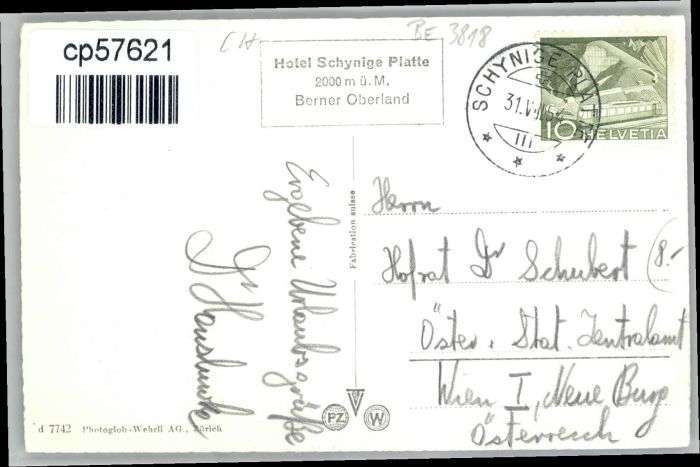 cp57621
CH
BE 3818
Hotel Schynige Platte
2000 m ü. M.
Berner Oberland
SCHYNIGE PLATTE
31.V
III
10 HELVETIA
Ergebene Urlaubsgrüße
Dr
Fabrication suisse
Herrn
Hofrat Dr Schubert
8.-
Öster. Stat. Zentralamt
Wien I, Neue Burg
Österreich
PZ W
d 7742 Photoglob-Wehrli AG., Zürich